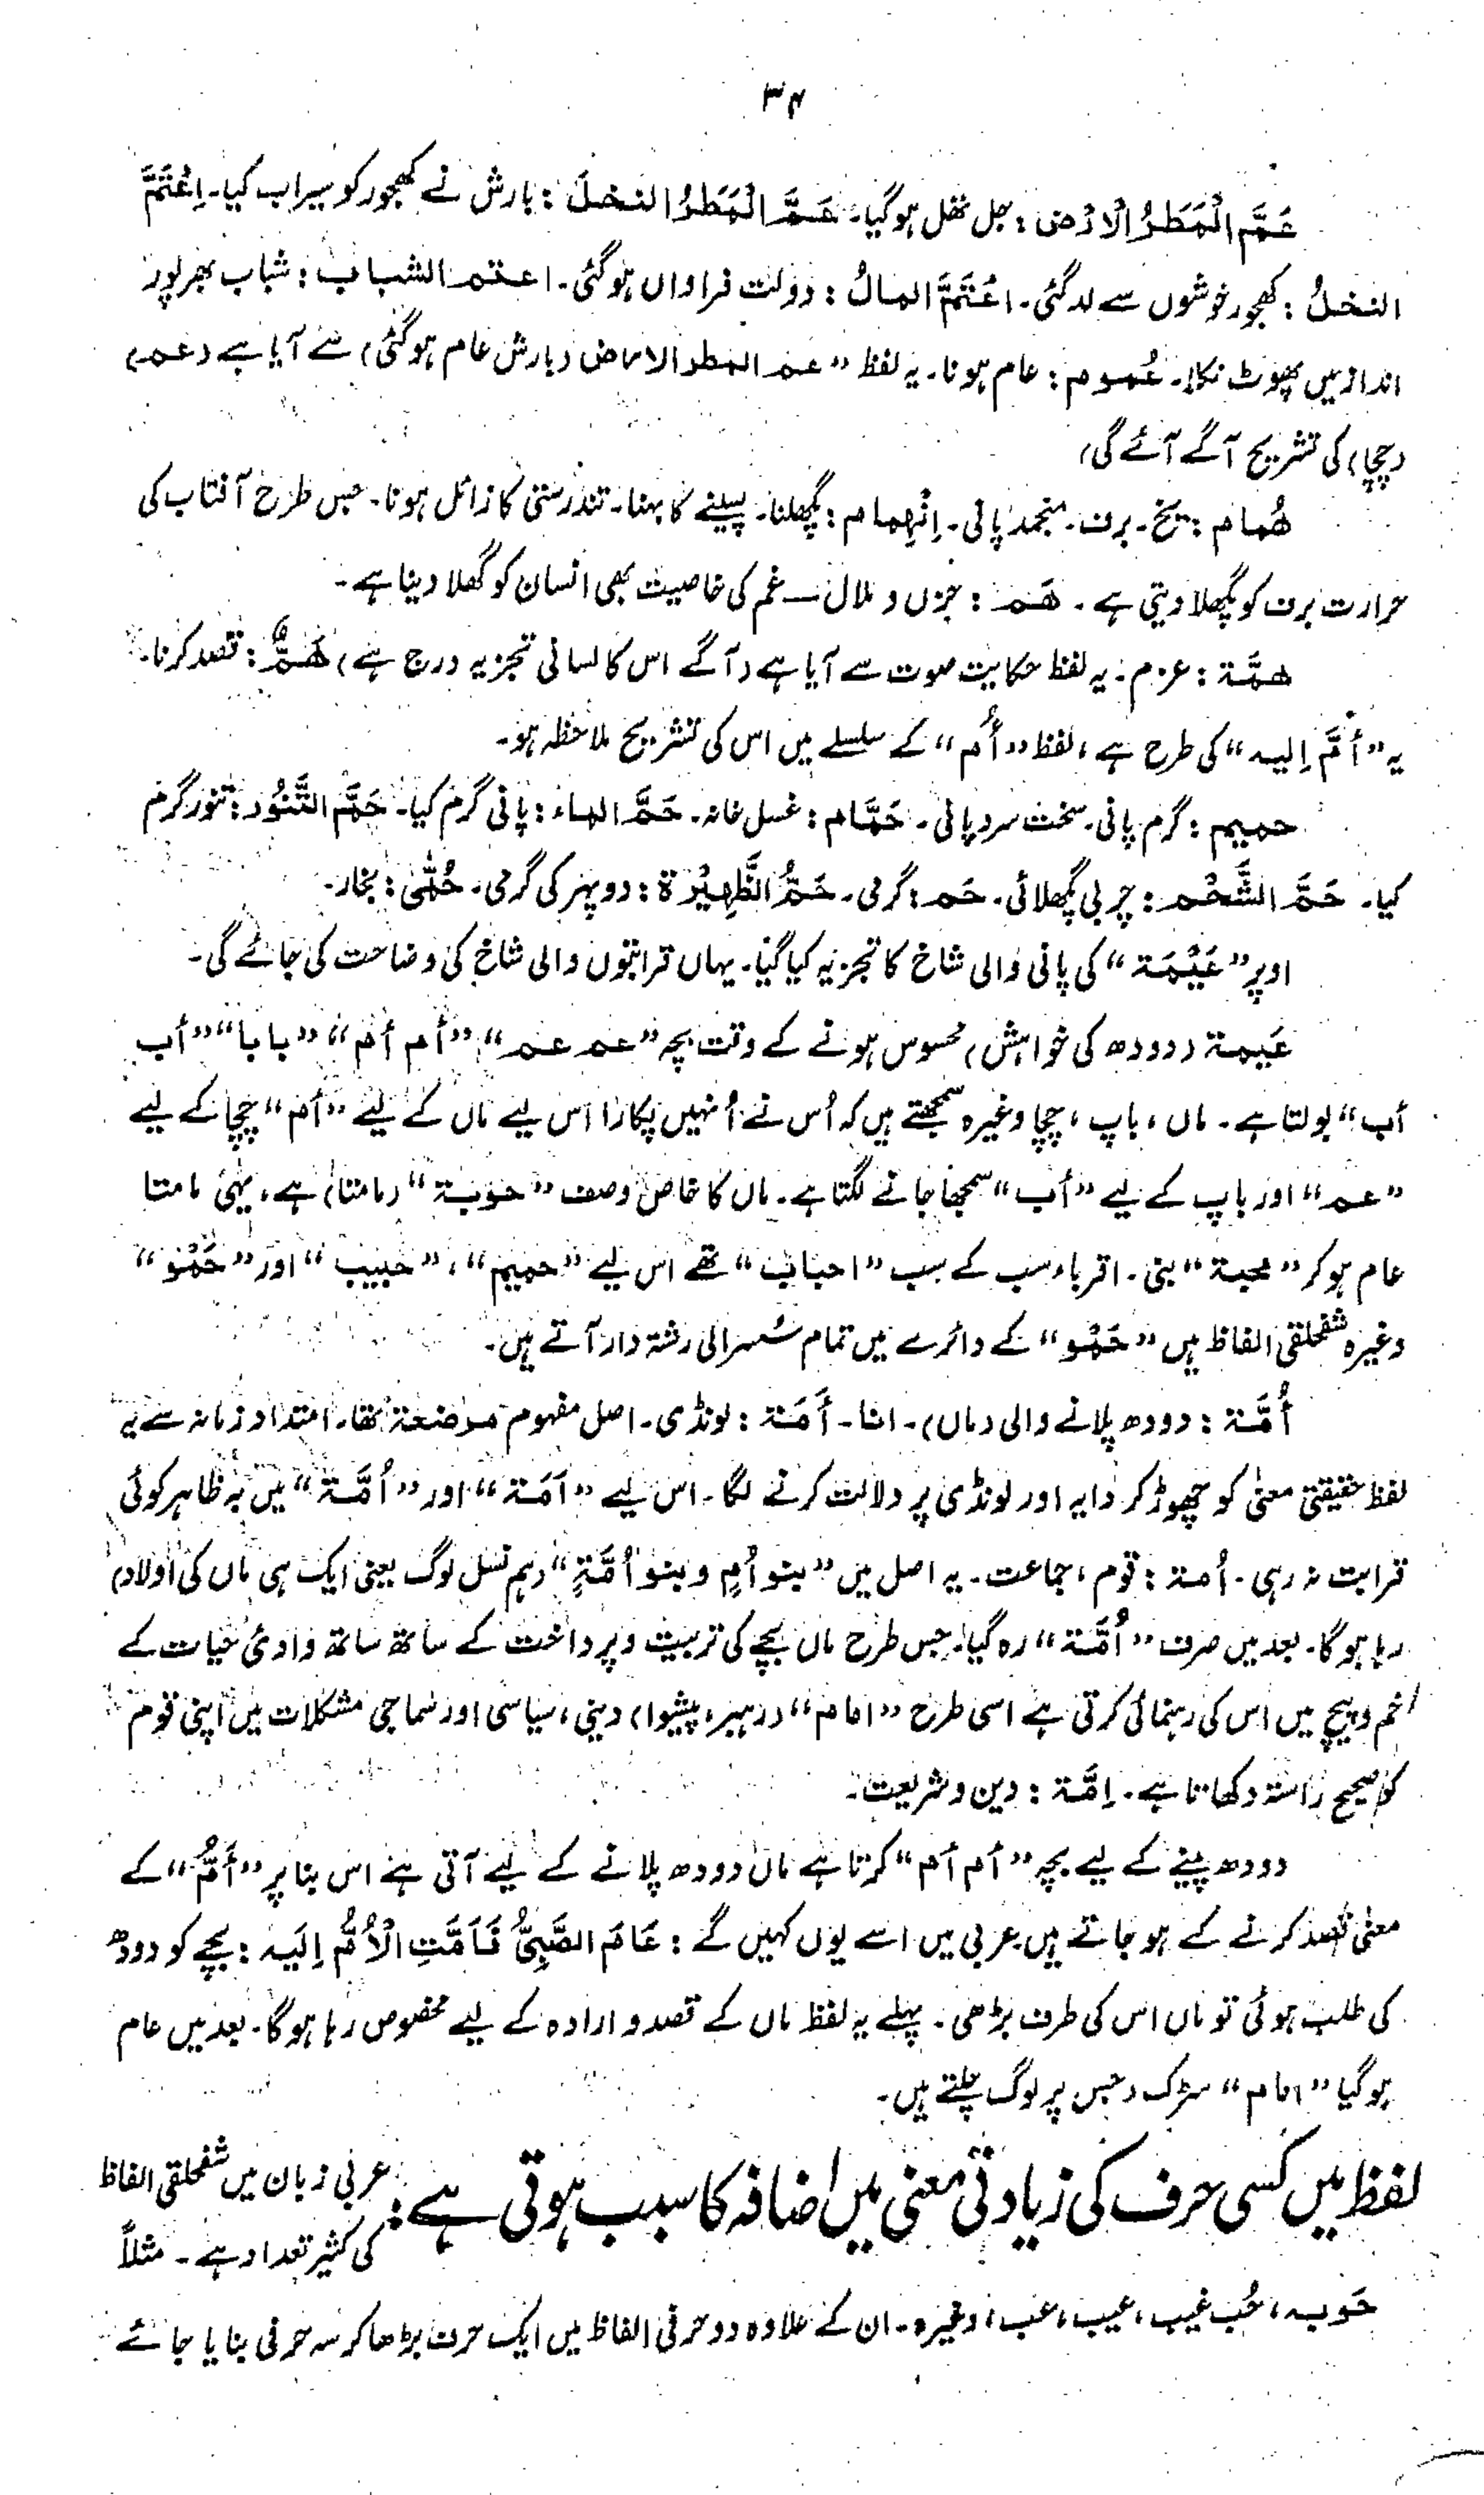 ۳۴
عَمَّ الْمَطَرُ الْاَرْضَ : جل تھل ہوگیا۔ عَمَّ الْمَطَرُ النخلَ : بارش نے کھجور کو سیراب کیا۔ اِعْتَمَّ
النخلُ : کھجور خوشوں سے لد گئی۔ اعْتَمَّ المالُ : دولت فراواں ہوگئی۔ اعتم الشباب : شباب بھرپور
انداز میں پھوٹ نکلا۔ عُموم : عام ہونا۔ یہ لفظ ”عم المطر الارض (بارش عام ہوگئی) سے آیا ہے (عم)
(چچا) کی تشریح آگے آئے گی)
هُمام : یخ۔ برف۔ منجمد پانی۔ اِنْهِمام : پگھلنا۔ پسینے کا بہنا۔ تندرستی کا زائل ہونا۔ جس طرح آفتاب کی
حرارت برف کو پگھلا دیتی ہے۔ هَم : حزن و ملال — غم کی خاصیت بھی انسان کو گھلا دینا ہے۔
همَّة : عزم۔ یہ لفظ حکایت صوت سے آیا ہے (آگے اس کا لسانی تجزیہ درج ہے) هَمٌّ : قصد کرنا۔
یہ ”أمَّ اِلیه“ کی طرح ہے، لفظ ”أُم“ کے سلسلے میں اس کی تشریح ملاحظہ ہو۔
حمیم : گرم پانی۔ سخت سرد پانی۔ حَمَّام : غسل خانہ۔ حَمَّ الماء : پانی گرم کیا۔ حَمَّ التَّنُّور : تنور گرم
کیا۔ حَمَّ الشَّحْم : چربی پگھلائی۔ حَم : گرمی۔ حَمُّ الظَّهِیْرَة : دوپہر کی گرمی۔ حُمّٰی : بخار۔
اوپر ”عَیْمَة“ کی پانی والی شاخ کا تجزیہ کیا گیا۔ یہاں قرابتوں والی شاخ کی وضاحت کی جائے گی۔
عَیمة (دودھ کی خواہش) محسوس ہونے کے وقت بچہ ”عم عم“ ”أم أم“ ”بابا“ ”أب
أب“ بولتا ہے۔ ماں، باپ، چچا وغیرہ سمجھتے ہیں کہ اُس نے اُنہیں پکارا اس لیے ماں کے لیے ”أم“ چچا کے لیے
”عم“ اور باپ کے لیے ”أب“ سمجھا جانے لگتا ہے۔ ماں کا خاص وصف ”حوبة“ (مامتا) ہے، یہی مامتا
عام ہوکر ”محبة“ بنی۔ اقرباء سب کے سب ”احباب“ تھے اس لیے ”حمیم“، ”حبیب“ اور ”حَمْو“
وغیرہ شفحلقی الفاظ ہیں ”حَمْو“ کے دائرے میں تمام سُسرالی رشتہ دار آتے ہیں۔
أُمَّة : دودھ پلانے والی (ماں)۔ انا۔ أَمَة : لونڈی۔ اصل مفہوم مرضعة تھا۔ امتداد زمانہ سے یہ
لفظ حقیقتی معنٰی کو چھوڑ کر دایہ اور لونڈی پر دلالت کرنے لگا۔ اس لیے ”اَمَة“ اور ”اُمَّة“ میں بہ ظاہر کوئی
قرابت نہ رہی۔ اُمة : قوم، جماعت۔ یہ اصل میں ”بنو اُمٍ و بنو اُمَّةٍ“ (ہم نسل لوگ یعنی ایک ہی ماں کی اولاد)
رہا ہوگا۔ بعد میں صرف ”اُمَّة“ رہ گیا۔ جس طرح ماں بچے کی تربیت و پرداخت کے ساتھ ساتھ وادئ حیات کے
خم و پیچ میں اس کی رہنمائی کرتی ہے اسی طرح ”امام“ (رہبر، پیشوا) دینی، سیاسی اور سماجی مشکلات میں اپنی قوم
کو صحیح راستہ دکھاتا ہے۔ اِمَّة : دین و شریعت۔
دودھ پینے کے لیے بچہ ”أم أم“ کرتا ہے ماں دودھ پلانے کے لیے آتی ہے اس بنا پر ”أَمٌّ“ کے
معنٰی قصد کرنے کے ہو جاتے ہیں۔ عربی میں اسے یوں کہیں گے : عَامَ الصَّبِیُّ فَاَمَّتِ الْاُمُّ اِلَیه : بچے کو دودھ
کی طلب ہوئی تو ماں اس کی طرف بڑھی۔ پہلے یہ لفظ ماں کے قصد و ارادہ کے لیے مخصوص رہا ہوگا۔ بعد میں عام
ہوگیا ”امام“ سڑک (جس پر لوگ چلتے ہیں۔
لفظ میں کسی حرف کی زیادتی معنی میں اضافہ کا سبب ہوتی ہے : عربی زبان میں شفحلقی الفاظ
کی کثیر تعداد ہے۔ مثلاً
حَوبه، حُب غیب، عیب، عب، وغیرہ۔ ان کے علاوہ دو حرفی الفاظ میں ایک حرف بڑھا کر سہ حرفی بنایا جائے